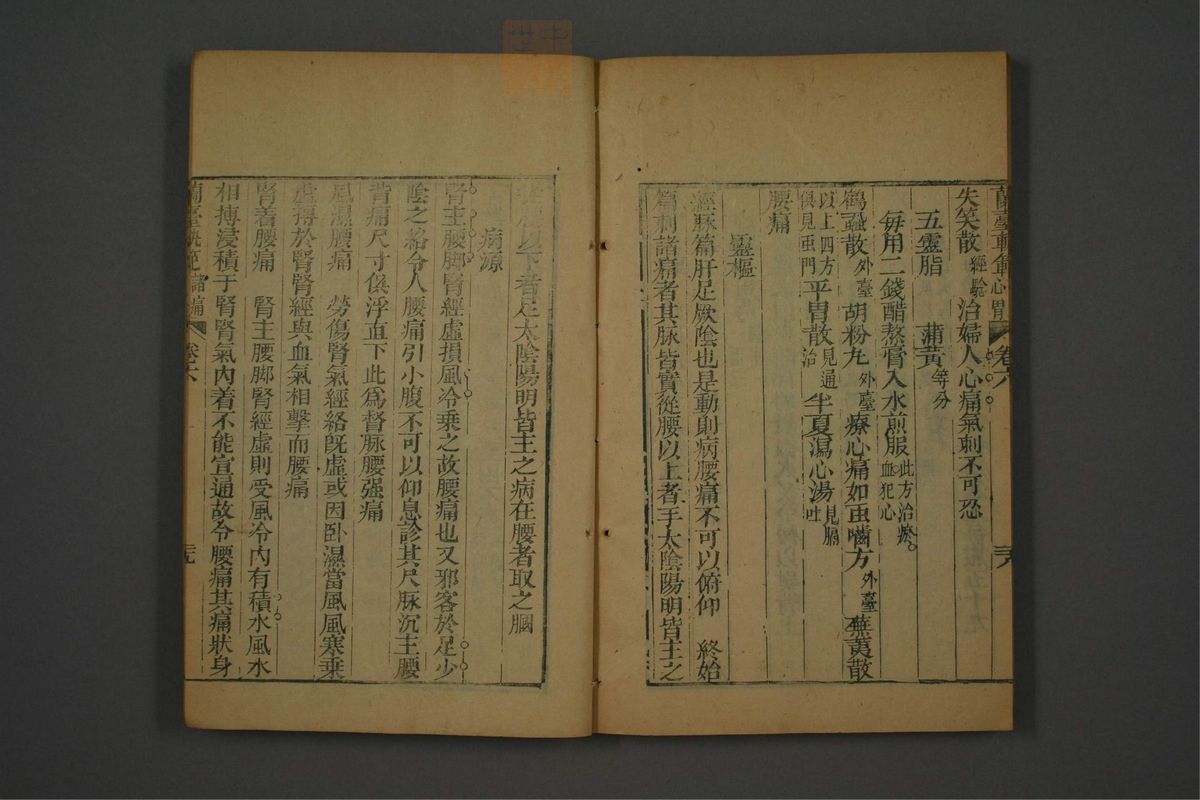 蘭臺軌範心胃 卷六 三八
失笑散經驗 治婦人心痛氣刺不可忍
五靈脂 蒲黃等分
每用二錢醋熬膏入水煎服此方治瘀血犯心
鶴蝨散外臺 胡粉丸外臺 療心痛如虫嚙方外臺 蕪荑散
以上四方俱見虫門 平胃散見通治 半夏瀉心湯見膈吐
腰痛
靈樞
經脉篇肝足厥陰也是動則病腰痛不可以俯仰 終始
篇刺諸痛者其脉皆實從腰以上者手太陰陽明皆主之
從腰以下者足太陰陽明皆主之病在腰者取之膕
病源
腎主腰脚腎經虛損風冷乘之故腰痛也又邪客於足少
陰之絡令人腰痛引小腹不可以仰息診其尺脉沉主腰
背痛尺寸俱浮直下此爲督脉腰强痛
風濕腰痛 勞傷腎氣經絡旣虛或因卧濕當風風寒乘
虛搏於腎腎經與血氣相擊而腰痛
腎着腰痛 腎主腰脚腎經虛則受風冷內有積水風水
相搏浸積于腎腎氣內着不能宣通故令腰痛其痛狀身
蘭臺軌範諸痛 卷六 三九